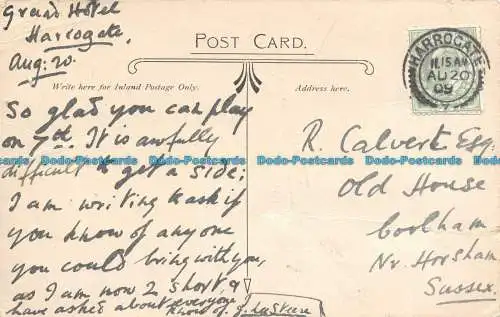 Grand Hotel
Harrogate,
Aug: 20.
POST CARD.
Write here for Inland Postage Only.
Address here.
HARROGATE
11.15 AM
AU 20
09
So glad you can play
on 7th. It is awfully
difficult to get a side;
I am writing to ask if
you know of anyone
you could bring with you,
as I am now 2 short, &
have asked about everyone I
know of.
R. Calvert Esq:
Old House
Coolham
Nr. Horsham
Sussex.
Dodo-Postcards Dodo-Postcards Dodo-Postcards Dodo-Postcards Dodo-Postcards